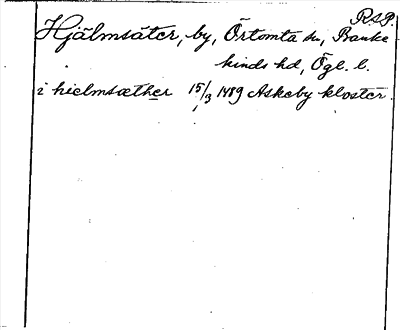 RSP.
Hjälmsäter, by, Örtomta sn, Banke
kinds hd, Ögl. l.
i hielmsæther 15/3 1489 Askeby kloster.